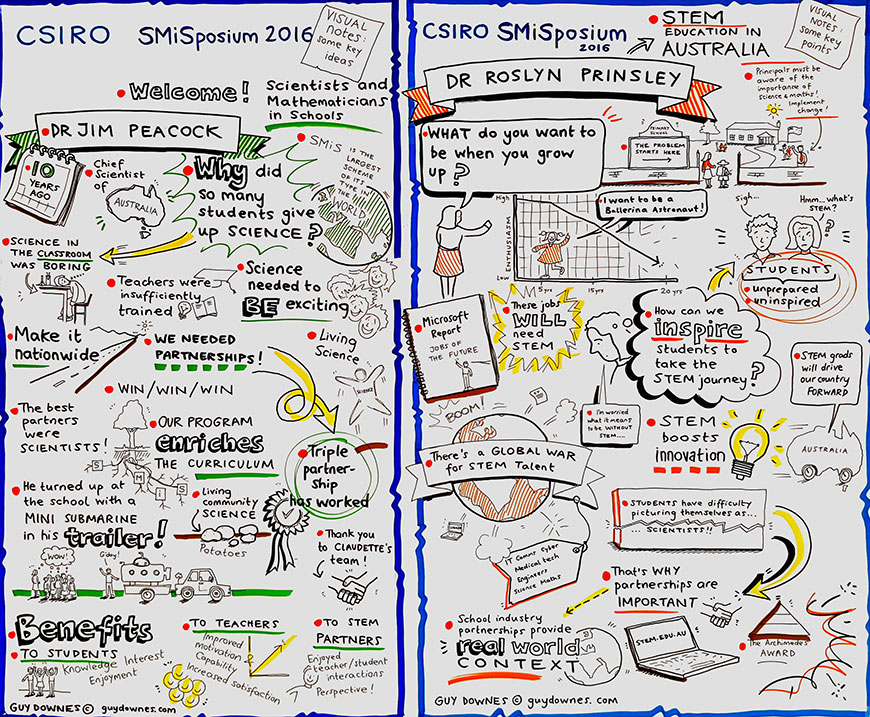 CSIRO SMiSposium 2016
VISUAL
notes:
some key
ideas
Welcome!
Scientists and
Mathematicians
in Schools
DR JIM PEACOCK
10
YEARS
AGO
Chief
Scientist
of
AUSTRALIA
Why did
so many
students give
up SCIENCE?
SMiS IS THE
LARGEST
SCHEME
OF ITS
TYPE IN
THE
WORLD
SCIENCE IN
THE CLASSROOM
WAS BORING
Teachers were
insufficiently
trained
Science
needed to
BE exciting
Make it
nationwide
WE NEEDED
PARTNERSHIPS!
Living
Science
SCIENCE
WIN/WIN/WIN
The best
partners
were
SCIENTISTS!
OUR PROGRAM
enriches
THE CURRICULUM
S M I S
Triple
partner-
ship
has worked
He turned up at
the school with a
MINI SUBMARINE
in his trailer!
Living
community
SCIENCE
Potatoes
WOW!
G'day!
Thank you
to CLAUDETTE's
team!
Benefits
TO STUDENTS
Knowledge Interest
Enjoyment
TO TEACHERS
Improved
motivation
Capability
Increased satisfaction
TO STEM
PARTNERS
Enjoyed
teacher/student
interactions
Perspective!
GUY DOWNES © guydownes.com
CSIRO SMiSposium
2016
STEM
EDUCATION IN
AUSTRALIA
VISUAL
NOTES:
some key
points
DR ROSLYN PRINSLEY
Principals must be
aware of the
importance of
science & maths!
Implement
change!
WHAT do you want to
be when you grow
up?
PRIMARY
SCHOOL
THE PROBLEM
STARTS HERE
High
ENTHUSIASM
Low
5yrs 15yrs 20 yrs
I want to be a
Ballerina Astronaut!
Sigh...
Hmm...what's
STEM?
STUDENTS
unprepared
uninspired
Microsoft
Report
JOBS OF
THE FUTURE
These jobs
WILL
need
STEM
How can we
inspire
students to
take the
STEM journey?
I'm worried
what it means
to be WITHOUT
STEM....
STEM grads
will drive
our country
FORWARD
AUSTRALIA
BOOM!
There's a GLOBAL WAR
for STEM Talent
STEM
boosts
innovation
IT Comms Cyber
Medical tech
Engineer
Science Maths
STUDENTS have difficulty
picturing themselves as...
... SCIENTISTS!!
That's WHY
partnerships are
IMPORTANT
School industry
partnerships provide
real world
CONTEXT
STEM.EDU.AU
The Archimedes
AWARD
GUY DOWNES © guydownes.com